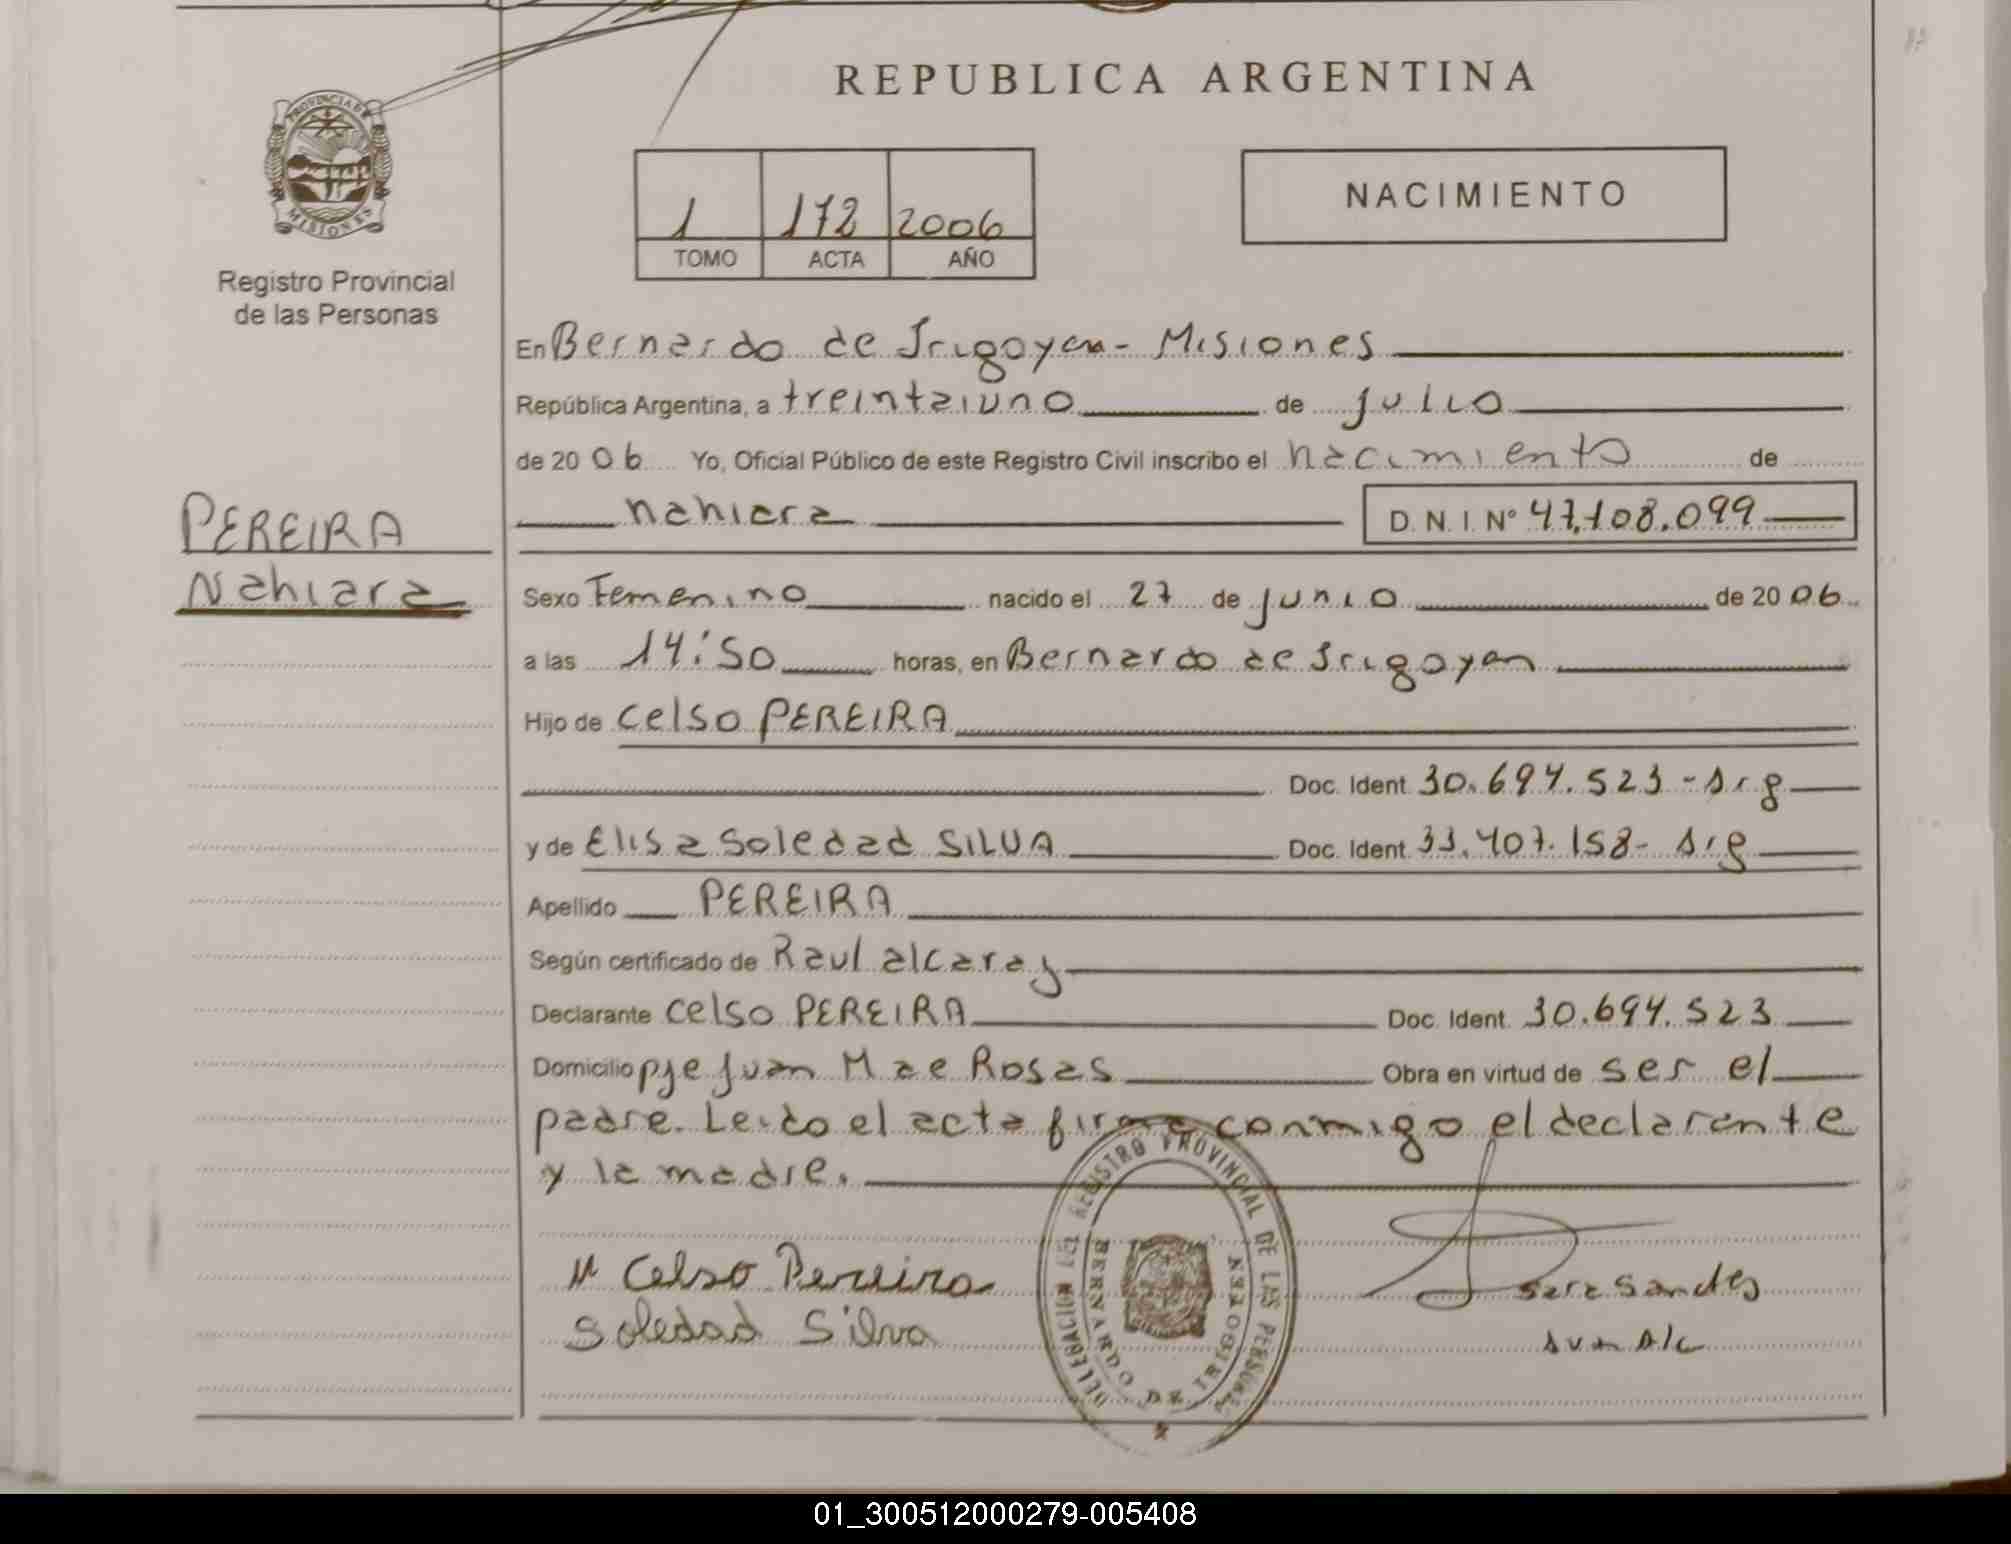 REPUBLICA ARGENTINA
PROVINCIA DE MISIONES
Registro Provincial
de las Personas
1 172 2006
TOMO ACTA AÑO
NACIMIENTO
En Bernardo de Irigoyen - Misiones
República Argentina, a treintaiuno de julio
de 20 06 Yo, Oficial Público de este Registro Civil inscribo el nacimiento de
nahiara D. N. I. Nº 47.108.099
PEREIRA
Nahiara
Sexo Femenino nacido el 27 de junio de 20 06
a las 14:50 horas, en Bernardo de Irigoyen
Hijo de Celso PEREIRA
Doc. Ident. 30.694.523 - Arg
y de Elisa Soledad SILVA Doc. Ident. 33.407.158 - Arg
Apellido PEREIRA
Según certificado de Raul alcaraz
Declarante Celso PEREIRA Doc. Ident. 30.694.523
Domicilio pje Juan M de Rosas Obra en virtud de ser el
padre. Leido el acta firma conmigo el declarante
y la madre.
Celso Pereira
Soledad Silva
REGISTRO PROVINCIAL DE LAS PERSONAS
DELEGACION
BERNARDO DE IRIGOYEN
01_300512000279-005408